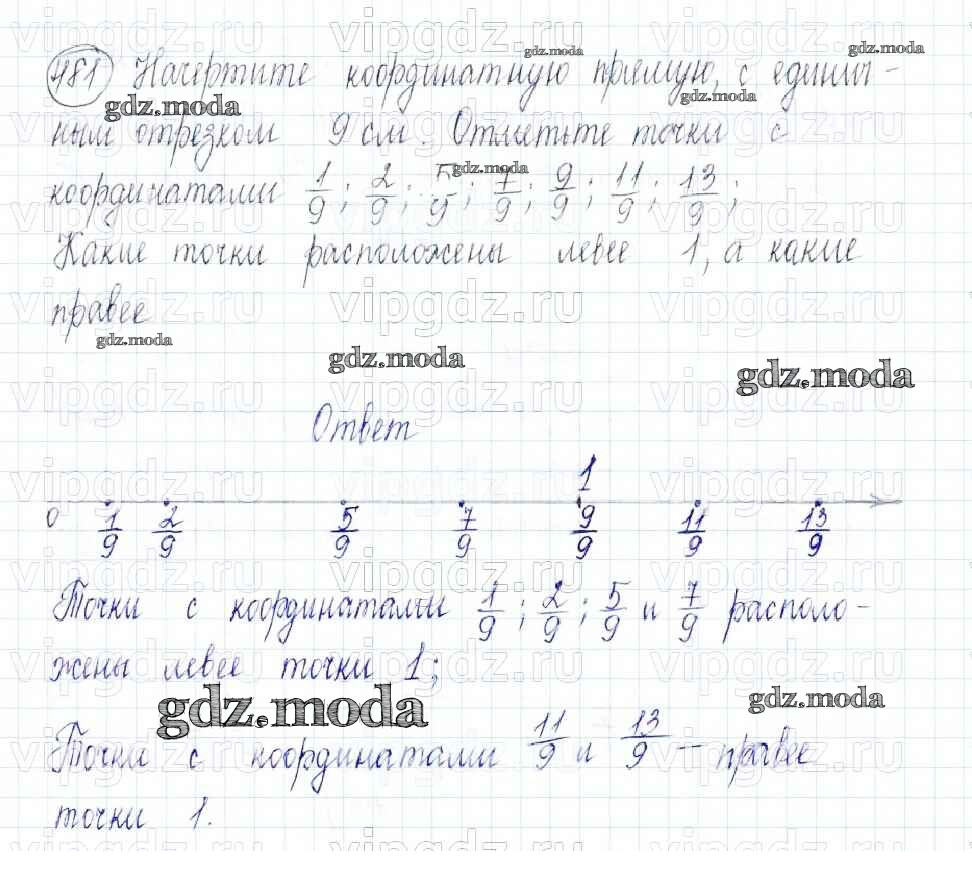 481 Начертите координатную прямую, с единич-
ным отрезком 9 см. Отметьте точки с
координатами 1/9; 2/9; 5/9; 7/9; 9/9; 11/9; 13/9;
Какие точки расположены левее 1, а какие
правее
Ответ
1
0 1/9 2/9 5/9 7/9 9/9 11/9 13/9
Точки с координатами 1/9; 2/9; 5/9 и 7/9 располо-
жены левее точки 1;
Точки с координатами 11/9 и 13/9 – правее
точки 1.
gdz.moda
vipgdz.ru